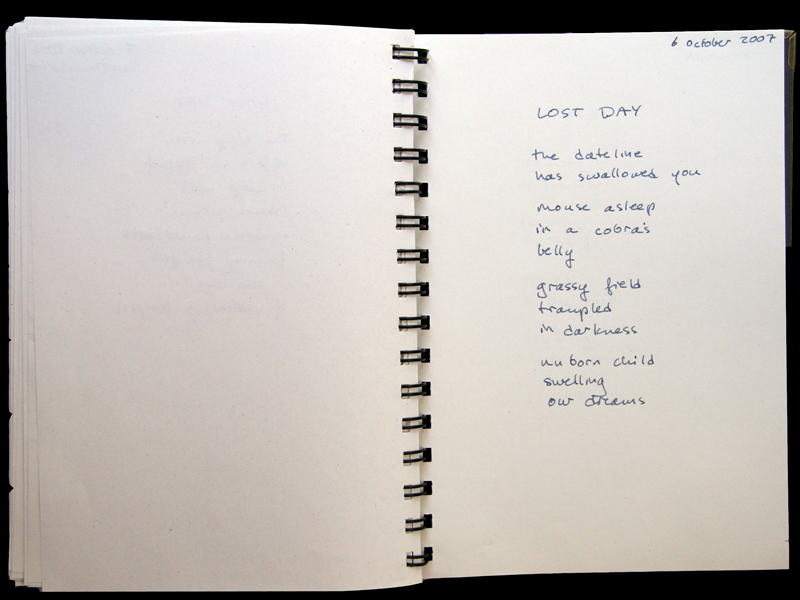 6 October 2007
LOST DAY
the dateline
has swallowed you
mouse asleep
in a cobra's
belly
grassy field
trampled
in darkness
unborn child
swelling
our dreams